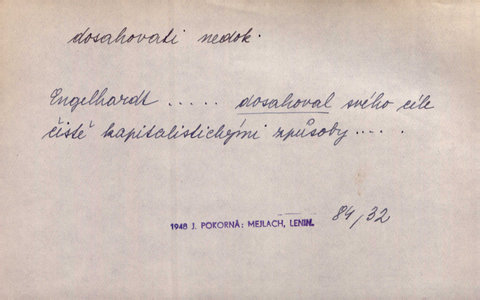 dosahovati nedok.
Engelhardt ..... dosahoval svého cíle
čistě kapitalistickými způsoby.....
1948 J. POKORNÁ: MEJLACH, LENIN.
84/32